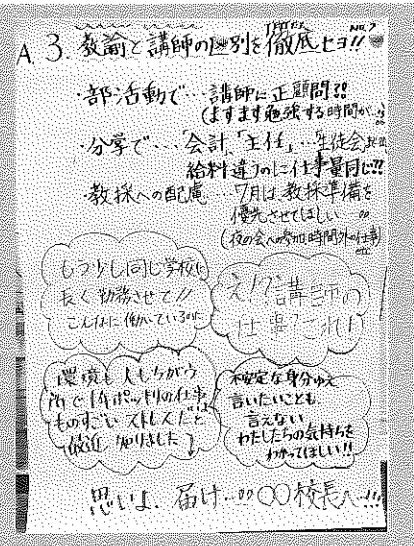 No.7
A 3. 教諭と講師の区別を徹底セヨ!!
・部活動で…講師に正顧問!?
(ますます勉強する時間が…)
・分学で…「会計」「主任」…生徒会
給料違うのに仕事量同じ!!
・教採への配慮…7月は教採準備を
優先させてほしい
(夜の会への参加、時間外の仕事)
もう少し同じ学校に
長く勤務させて!!
こんなに働いているのに
え!?講師の
仕事?これ!
環境も人もちがう
所で1年ポッキリの仕事
ものすごいストレスだと
最近知りました
不安定な身分ゆえ
言いたいことも
言えない
わたしたちの気持ちを
わかってほしい!!
思いよ、届け…〇〇校長へ…!!